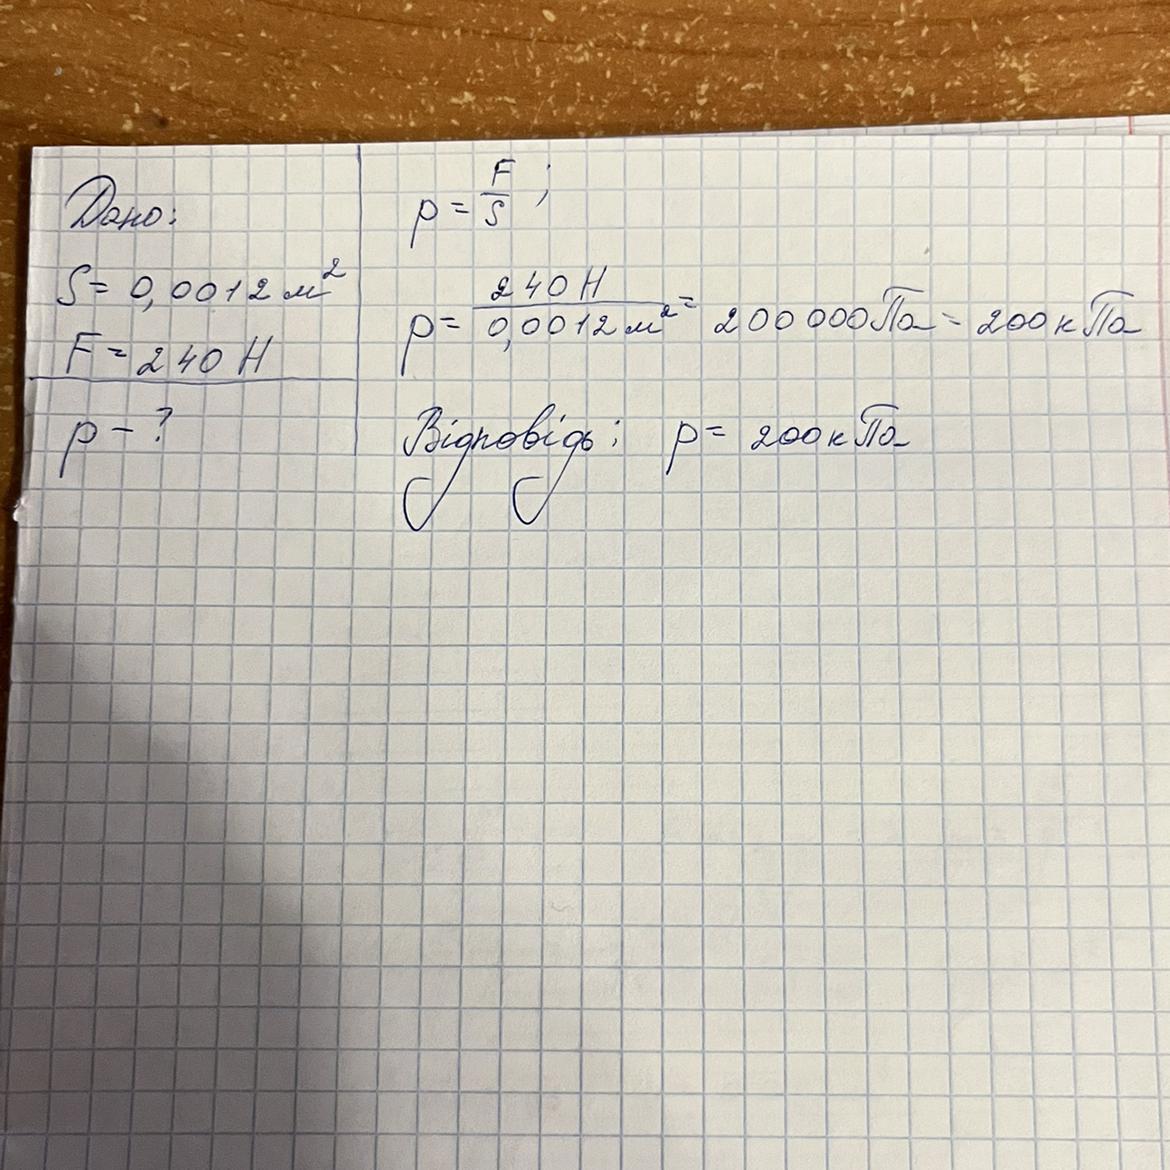 Дано:
S = 0,0012 м²
F = 240 Н
p - ?
p = F/S ;
p = 240 Н / 0,0012 м² = 200 000 Па = 200 кПа
Відповідь: p = 200 кПа